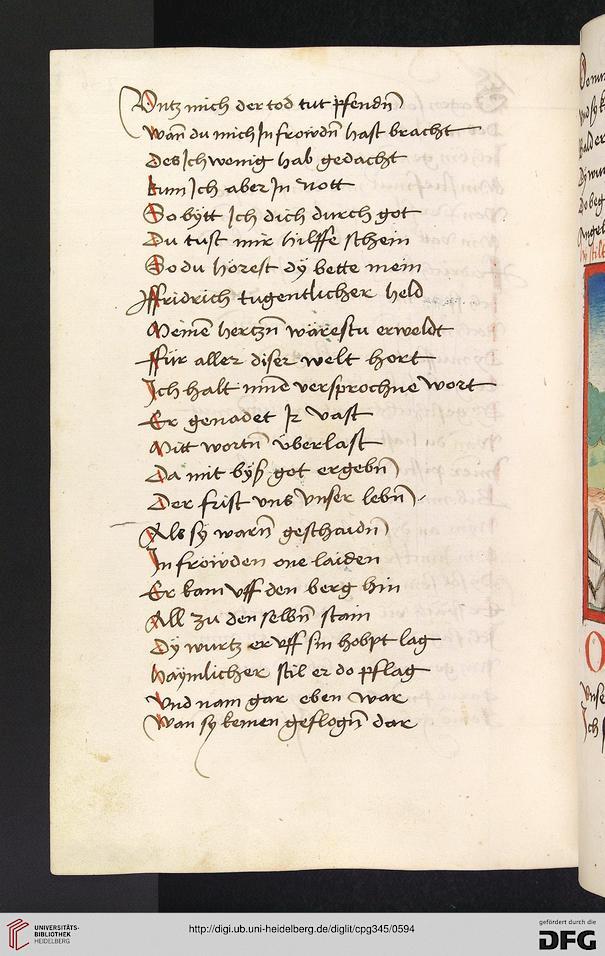 Untz mich der tod tut pfendn̄
Wan̄ du mich Jn froẅdn̄ hast bracht
Des Jch wenig hab gedacht
kum Jch aber Jn nott
So bÿtt Jch dich durch got
Du tust mir hilffe schein
So du horest dÿ bette mein
Ffridrich tugentlicher held
Meinē hertzn̄ wärestu erwelt
Ffür aller diser welt hort
Jch halt versprochne wort
Er genadet Jr vast
Mitt wortn̄ überlast
Da mit bÿß got ergebn̄
Der frist vns vnser lebn̄
Als sÿ warn̄ geschaidn̄
Jn froẅden one laiden
Er kam vff den berg hin
All zu den selbn̄ stain
Dÿ wurtz er vff sin hobpt lag
haÿmlicher stil er do pflag
Vnd nam gar eben war
Wan sÿ kemen geflogn̄ dar
UNIVERSITÄTS-
BIBLIOTHEK
HEIDELBERG
http://digi.ub.uni-heidelberg.de/diglit/cpg345/0594
gefördert durch die
DFG